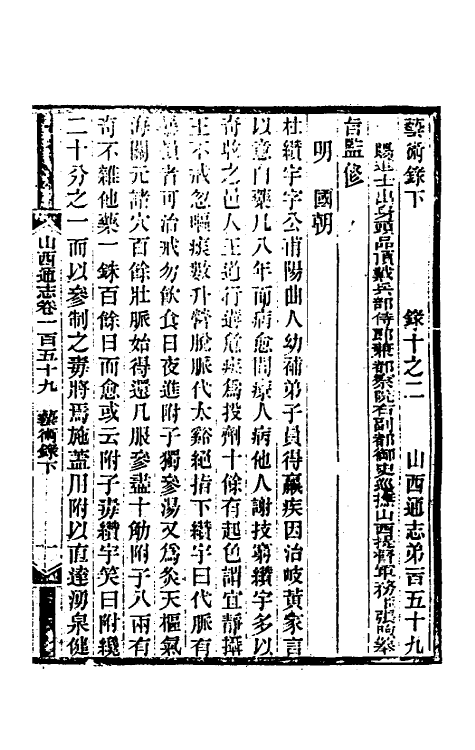 藝術錄下　錄十之二　山西通志弟一百五十九
賜進士出身頭品頂戴兵部侍郎兼都察院右副都御史巡撫山西提督軍務張煦奉
旨監修
明　國朝
杜纘宇字公甫陽曲人幼補弟子員得羸疾因治岐黃家言
以意自藥凡八年而病愈間療人病他人謝技窮纘宇多以
奇收之邑人王道行遘危疾爲投劑十餘有起色謂宜靜攝
王不戒忽嘔痰數升營脫脈代太谿絕指下纘宇曰代脈有
須者可治戒勿飲食日夜進附子獨參湯又爲灸天樞氣
海關元諸穴百餘壯脈始得還凡服參盡十觔附子八兩有
奇不雜他藥一銖百餘日而愈或云附子毒纘宇笑曰附纔
二十分之一而以參制之毒將焉施蓋用附以直達湧泉健
山西通志卷一百五十九　藝術錄下　一